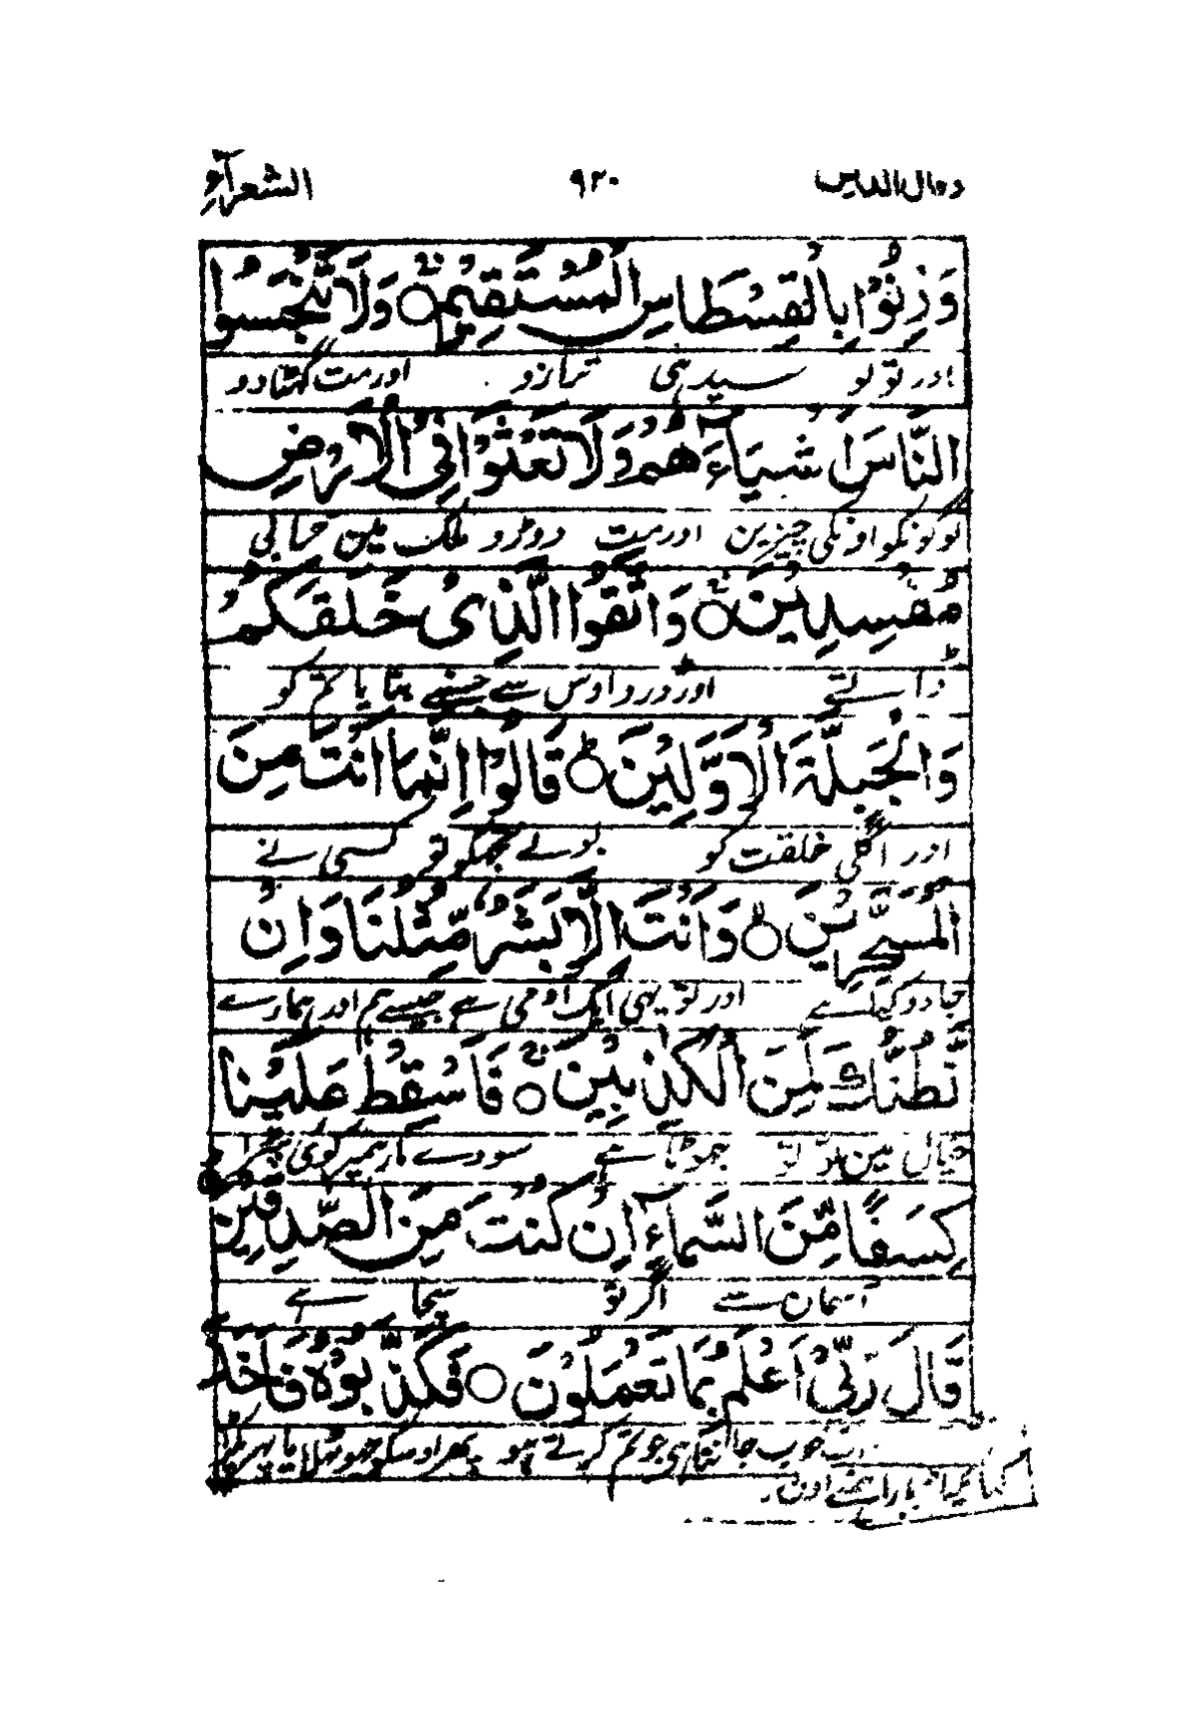 وقال الذین ۹۲۰ الشعرآء
وَزِنُوْا بِالْقِسْطَاسِ الْمُسْتَقِيْمِ ○ وَلَا تَبْخَسُوا
اور تولو سیدہی ترازو اورمت گھٹا دو
النَّاسَ اَشْيَآءَهُمْ وَلَا تَعْثَوْا فِى الْاَرْضِ
لوگونکو اونکی چیزین اورمت دوڑو ملک مین خرابی
مُفْسِدِيْنَ ○ وَاتَّقُوا الَّذِىْ خَلَقَكُمْ
ڈالتے اور ڈرو اوس سے جسنے بنایا تم کو
وَالْجِبِلَّةَ الْاَوَّلِيْنَ ○ قَالُوْا اِنَّمَا اَنْتَ مِنَ
اور اگلی خلقت کو بولے تجھکو تو کسی نے
الْمُسَحَّرِيْنَ ○ وَاَنْتَ اِلَّا بَشَرٌ مِّثْلُنَا وَاِنْ
جادو کیا ہے اور تو یہی ایک ادمی ہے جیسے ہم اور ہمارے
نَّظُنُّكَ لَمِنَ الْكٰذِبِيْنَ ○ فَاَسْقِطْ عَلَيْنَا
خیال مین تو تو جھوٹا ہے سو دے مار ہمپر کوئی
كِسَفًا مِّنَ السَّمَآءِ اِنْ كُنْتَ مِنَ الصّٰدِقِيْنَ
آسمان سے اگر تو سچا ہے
قَالَ رَبِّىْ اَعْلَمُ بِمَا تَعْمَلُوْنَ ○ فَكَذَّبُوْهُ فَاَخَذَ
خوب جانتا ہی جو تم کرتے ہو پھر اوسکو جھوٹھلایا پھر